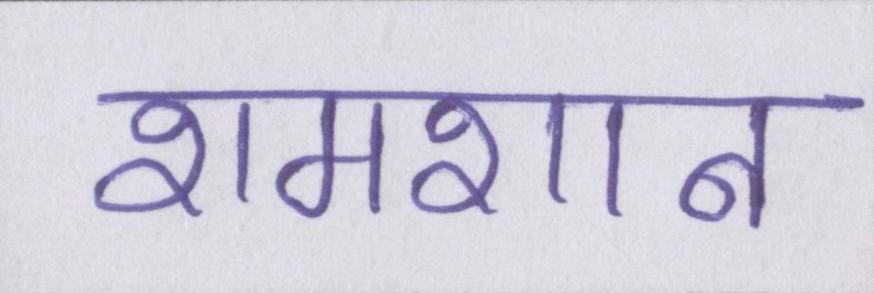 शमशान